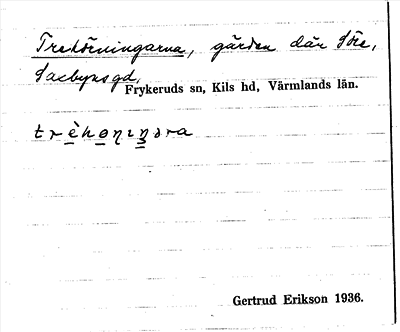 Trehörningarna, gården där Söre,
Saebyns gd,
Frykeruds sn, Kils hd, Värmlands län.
Gertrud Erikson 1936.